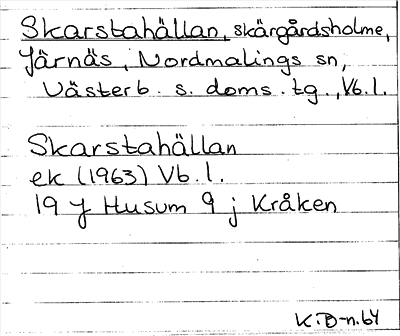 Skarstahällan, skärgårdsholme,
Järnäs, Nordmalings sn,
Västerb. s. doms. tg., Vb. l.
Skarstahällan
ek (1963) Vb. l.
19 J Husum 9 j Kråken
K. D-n. 64